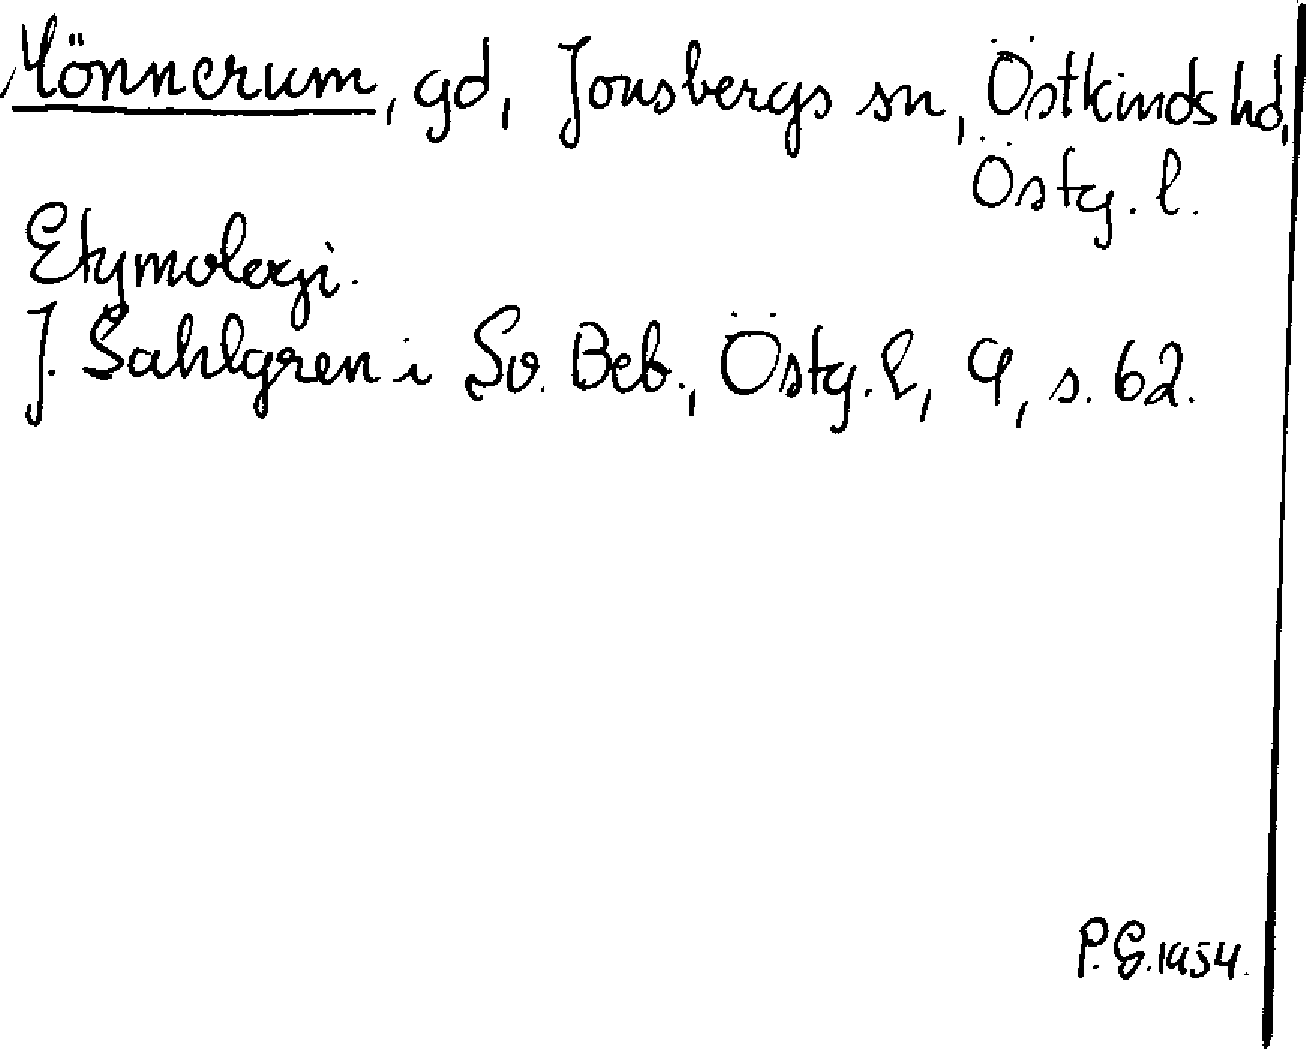 Mönnerum, gd, Jonsbergs sn, Östkinds hd,
Östg. l.
Etymologi.
J. Sahlgren i Sv. Beb., Östg. l, 9, s. 62.
P. G. 1954.